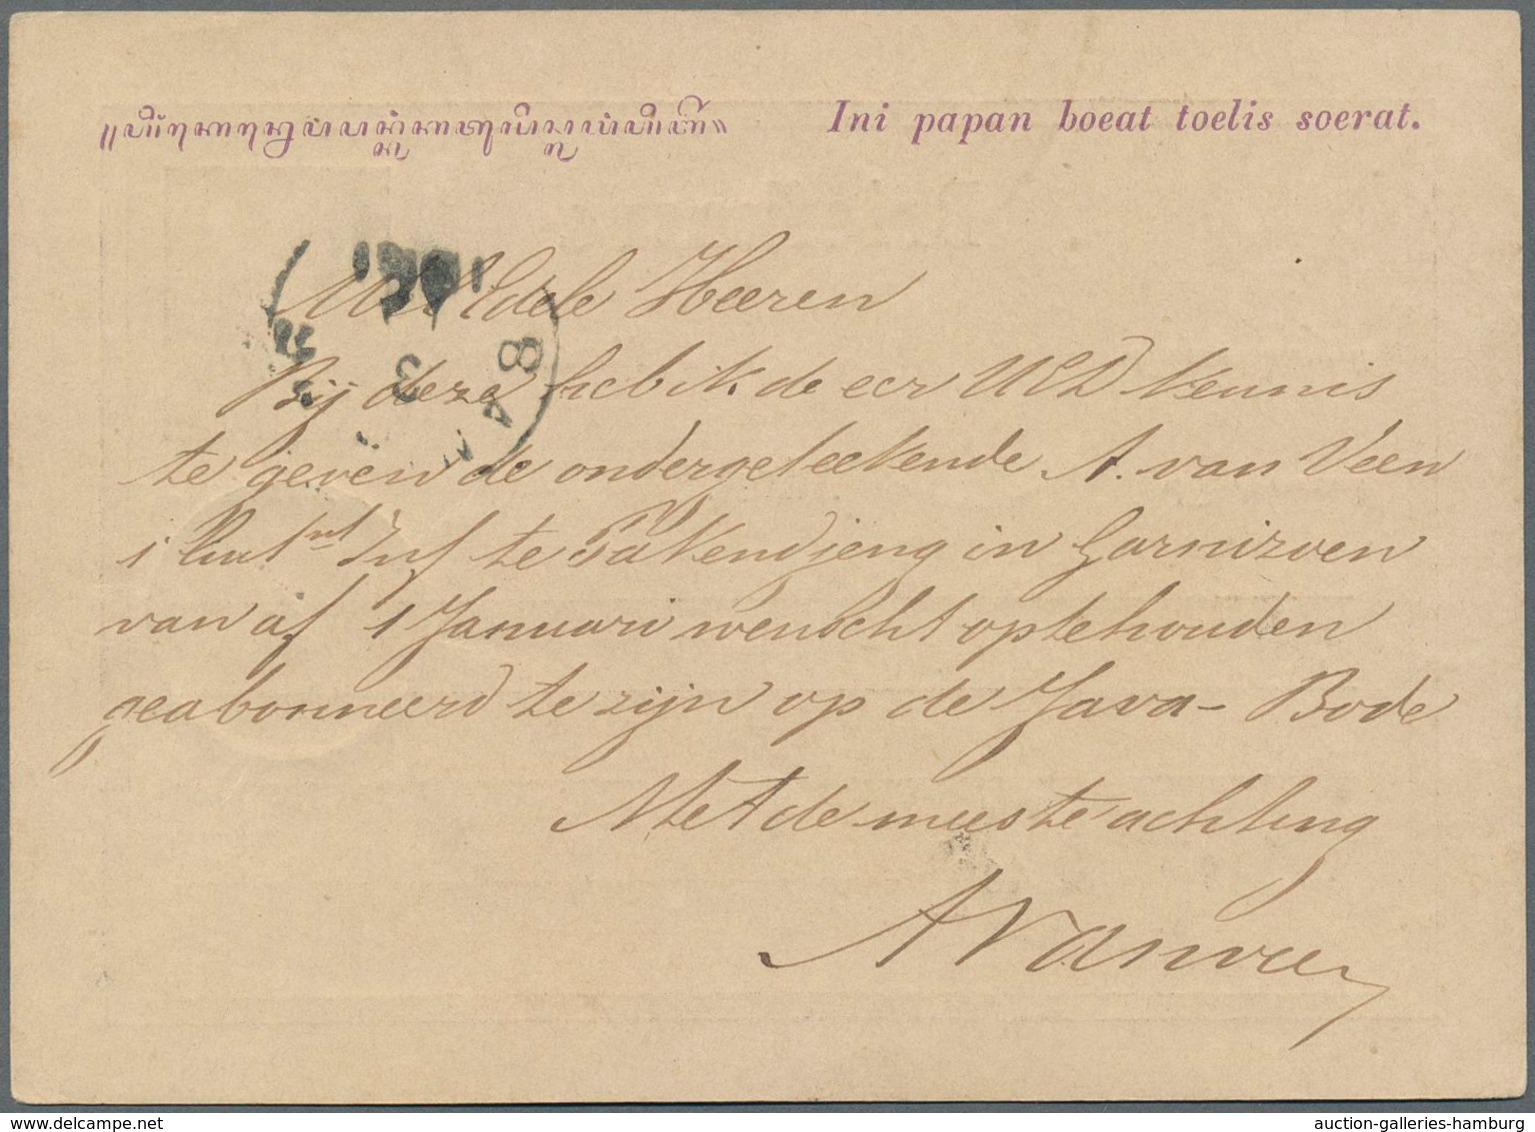 Ini papan boeat toelis soerat.
Wel Edele Heeren
Bij deze heb ik de eer UED kennis
te geven de ondergeteekende A. van Veen
1 Luitnt Inf te Pakendjeng in Garnizoen
van af 1 Januari wenscht optehouden
geabonneerd te zijn op de Java-Bode
Met de meeste achting
AVanveen
auction-galleries-hamburg